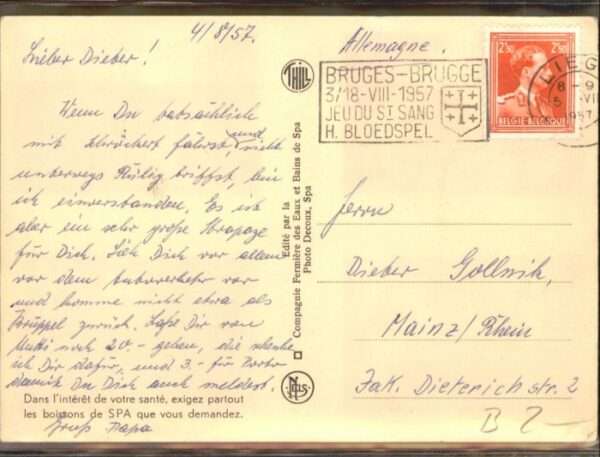 4/8/57.
Lieber Dieter!
Wenn Du tatsächlich
mit Schröchert fährst, und nicht
unterwegs Rülig triffst, bin
ich einverstanden. Es ist
aber ein sehr große Strapaze
für Dich. Sieh Dich vor allem
vor dem Autoverkehr vor
und komme nicht etwa als
Krüppel zurück. Laße Dir von
Mutti noch 20.- geben, die schenke
ich Dir dafür, und 3.- für Porto
damit Du Dich auch meldest.
Dans l'intérêt de votre santé, exigez partout
les boissons de SPA que vous demandez.
Gruß Papa
THILL
Edité par la
Compagnie Fermière des Eaux et Bains de Spa
Photo Decoux, Spa
NELS
Allemagne.
BRUGES-BRUGGE
3/18-VIII-1957
JEU DU ST SANG
H. BLOEDSPEL
2F50 2F50
BELGIE-BELGIQUE
LIEG
8-9
5
1957
Herrn
Dieter Gollnik,
Mainz/Rhein
Jak. Dieterichstr. 2
B 2-